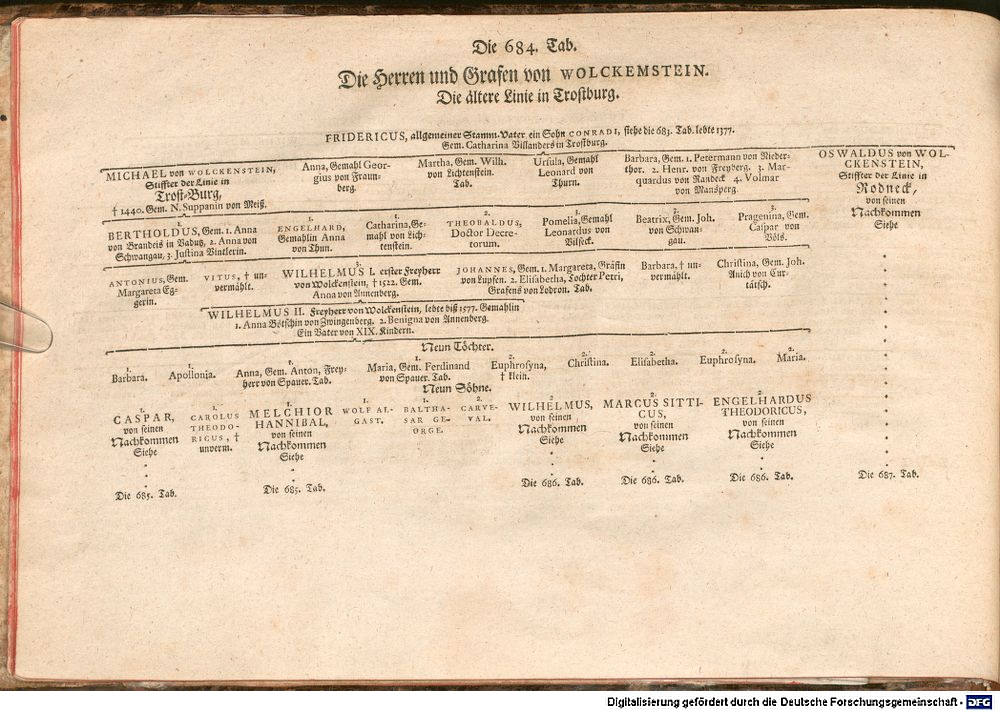 Die 684. Tab.
Die Herren und Grafen von WOLCKEMSTEIN.
Die ältere Linie in Trostburg.
FRIDERICUS, allgemeiner Stamm-Vater, ein Sohn CONRADI, siehe die 683. Tab. lebte 1377.
Gem. Catharina Villanders in Trostburg.
MICHAEL von WOLCKENSTEIN,
Stiffter der Linie in
Trost-Burg,
† 1440. Gem. N. Suppanin von Meiß.
Anna, Gemahl Geor-
gius von Fraun-
berg.
Martha, Gem. Wilh.
von Lichtenstein.
Tab.
Ursula, Gemahl
Leonard von
Thurn.
Barbara, Gem. 1. Petermann von Nieder-
thor. 2. Henr. von Freyberg. 3. Mar-
quardus von Randeck 4. Volmar
von Mansperg.
OSWALDUS von WOL-
CKENSTEIN,
Stiffter der Linie in
Rodneck,
von seinen
Nachkommen
Siehe
1.
BERTHOLDUS, Gem. 1. Anna
von Brandeis in Vadutz, 2. Anna von
Schwangau, 3. Justina Vintlerin.
1.
ENGELHARD,
Gemahlin Anna
von Thun.
1.
Catharina, Ge-
mahl von Lich-
tenstein.
2.
THEOBALDUS,
Doctor Decre-
torum.
Pomelia, Gemahl
Leonardus von
Vilseck.
2.
Beatrix, Gem. Joh.
von Schwan-
gau.
3.
Pragenina, Gem.
Caspar von
Völs.
ANTONIUS, Gem.
Margareta Eg-
gerin.
VITUS, † un-
vermählt.
3.
WILHELMUS I. erster Freyherr
von Wolckenstein, † 1522. Gem.
Anna von Annenberg.
JOHANNES, Gem. 1. Margareta, Gräfin
von Lupfen. 2. Elisabetha, Tochter Petri,
Grafens von Lodron. Tab.
Barbara, † un-
vermählt.
Christina, Gem. Joh.
Anich von Cur-
tätsch.
WILHELMUS II. Freyherr von Wolckenstein, lebte biß 1577. Gemahlin
1. Anna Bötschin von Zwingenberg. 2. Benigna von Annenberg.
Ein Vater von XIX. Kindern.
Neun Töchter.
1.
Barbara.
1.
Apollonia.
1.
Anna, Gem. Anton, Frey-
herr von Spauer. Tab.
1.
Maria, Gem. Ferdinand
von Spauer. Tab.
2.
Euphrosyna,
† klein.
2.
Christina.
2.
Elisabetha.
2.
Euphrosyna.
2.
Maria.
Neun Söhne.
1.
CASPAR,
von seinen
Nachkommen
Siehe
Die 685. Tab.
1.
CAROLUS
THEODO-
RICUS, †
unverm.
1.
MELCHIOR
HANNIBAL,
von seinen
Nachkommen
Siehe
Die 685. Tab.
1.
WOLF AL-
GAST.
1.
BALTHA-
SAR GE-
ORGE.
2.
CARVE-
VAL.
2.
WILHELMUS,
von seinen
Nachkommen
Siehe
Die 686. Tab.
2.
MARCUS SITTI-
CUS,
von seinen
Nachkommen
Siehe
Die 686. Tab.
2.
ENGELHARDUS
THEODORICUS,
von seinen
Nachkommen
Siehe
Die 686. Tab.
Die 687. Tab.
Digitalisierung gefördert durch die Deutsche Forschungsgemeinschaft - DFG